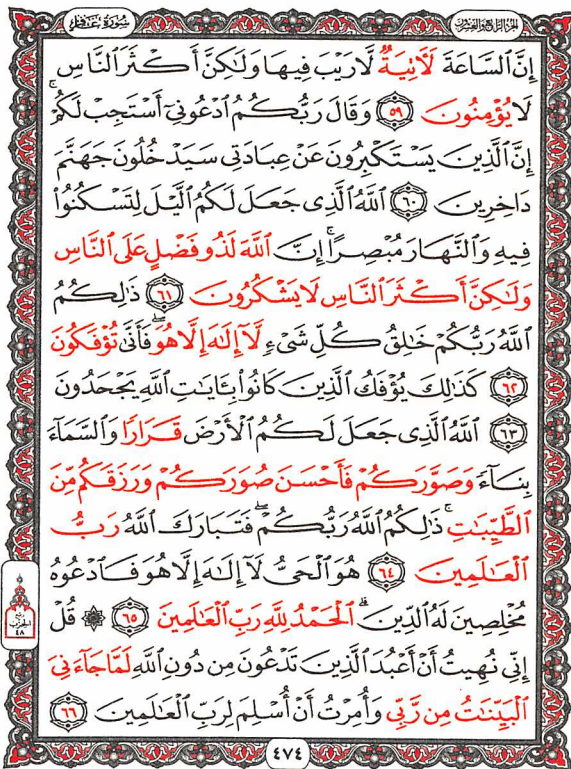 الجزء الرابع والعشرون
سورة غافر
إِنَّ ٱلسَّاعَةَ لَأٓتِيَةٌ لَّا رَيْبَ فِيهَا وَلَٰكِنَّ أَكْثَرَ ٱلنَّاسِ
لَا يُؤْمِنُونَ ٥٩ وَقَالَ رَبُّكُمُ ٱدْعُونِيٓ أَسْتَجِبْ لَكُمْۚ
إِنَّ ٱلَّذِينَ يَسْتَكْبِرُونَ عَنْ عِبَادَتِى سَيَدْخُلُونَ جَهَنَّمَ
دَاخِرِينَ ٦٠ ٱللَّهُ ٱلَّذِى جَعَلَ لَكُمُ ٱلَّيْلَ لِتَسْكُنُوا۟
فِيهِ وَٱلنَّهَارَ مُبْصِرًاۚ إِنَّ ٱللَّهَ لَذُو فَضْلٍ عَلَى ٱلنَّاسِ
وَلَٰكِنَّ أَكْثَرَ ٱلنَّاسِ لَا يَشْكُرُونَ ٦١ ذَٰلِكُمُ
ٱللَّهُ رَبُّكُمْ خَٰلِقُ كُلِّ شَىْءٍ لَّآ إِلَٰهَ إِلَّا هُوَۖ فَأَنَّىٰ تُؤْفَكُونَ
٦٢ كَذَٰلِكَ يُؤْفَكُ ٱلَّذِينَ كَانُوا۟ بِـَٔايَٰتِ ٱللَّهِ يَجْحَدُونَ
٦٣ ٱللَّهُ ٱلَّذِى جَعَلَ لَكُمُ ٱلْأَرْضَ قَرَارًا وَٱلسَّمَآءَ
بِنَآءً وَصَوَّرَكُمْ فَأَحْسَنَ صُوَرَكُمْ وَرَزَقَكُم مِّنَ
ٱلطَّيِّبَٰتِۚ ذَٰلِكُمُ ٱللَّهُ رَبُّكُمْۖ فَتَبَارَكَ ٱللَّهُ رَبُّ
ٱلْعَٰلَمِينَ ٦٤ هُوَ ٱلْحَىُّ لَآ إِلَٰهَ إِلَّا هُوَ فَٱدْعُوهُ
مُخْلِصِينَ لَهُ ٱلدِّينَۗ ٱلْحَمْدُ لِلَّهِ رَبِّ ٱلْعَٰلَمِينَ ٦٥ ۞ قُلْ
إِنِّى نُهِيتُ أَنْ أَعْبُدَ ٱلَّذِينَ تَدْعُونَ مِن دُونِ ٱللَّهِ لَمَّا جَآءَنِىَ
ٱلْبَيِّنَٰتُ مِن رَّبِّى وَأُمِرْتُ أَنْ أُسْلِمَ لِرَبِّ ٱلْعَٰلَمِينَ ٦٦
٤٧٤
الحزب
٤٨